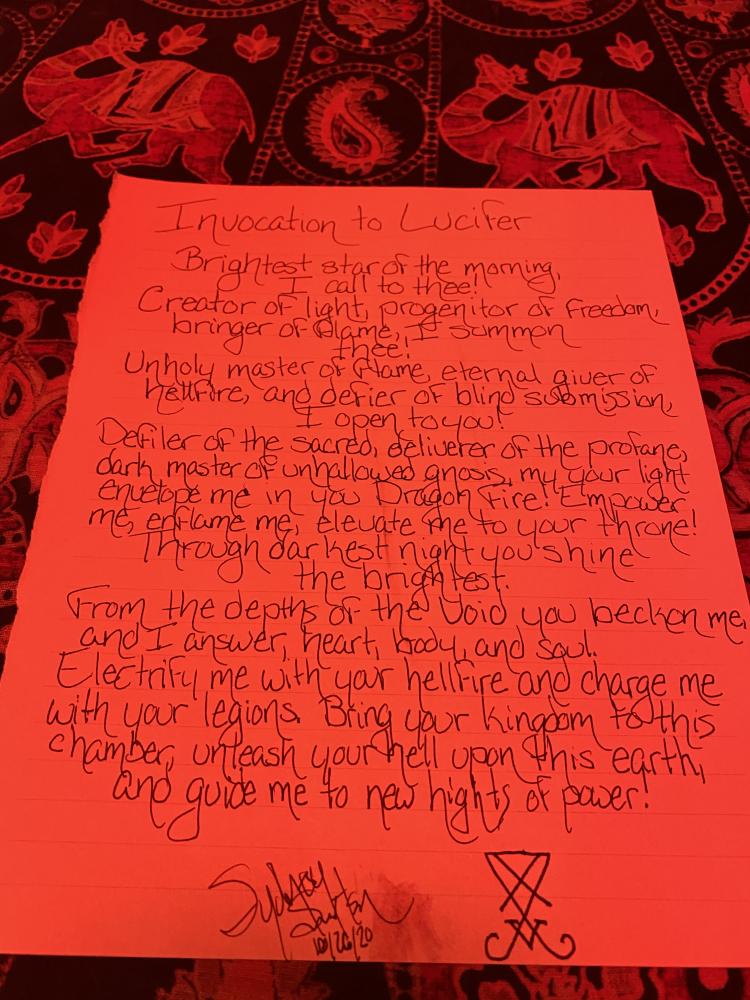 Invocation to Lucifer
Brightest star of the morning,
I call to thee!
Creator of light, progenitor of freedom,
bringer of flame, I summon
thee!
Unholy master of flame, eternal giver of
hellfire, and defier of blind submission,
I open to you!
Defiler of the sacred, deliverer of the profane,
dark master of unhallowed gnosis, my your light
envelope me in you Dragon Fire! Empower
me, enflame me, elevate me to your throne!
Through darkest night you shine
the brightest.
From the depths of the Void you beckon me,
and I answer, heart, body, and soul.
Electrify me with your hellfire and charge me
with your legions. Bring your kingdom to this
chamber, unleash your hell upon this earth,
and guide me to new hights of power!
Sydney